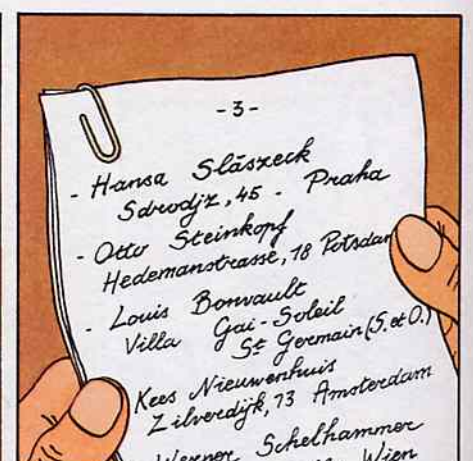 - 3 -
- Hansa Slászeck
Sdrodjz, 45 - Praha
- Otto Steinkopf
Hedemanstrasse, 18 Potsdam
- Louis Bonvault
Villa Gai-Soleil
St Germain (S. et O.)
Kees Nieuwenhuis
Zilverdijk, 73 Amsterdam
Werner Schelhammer
Wien